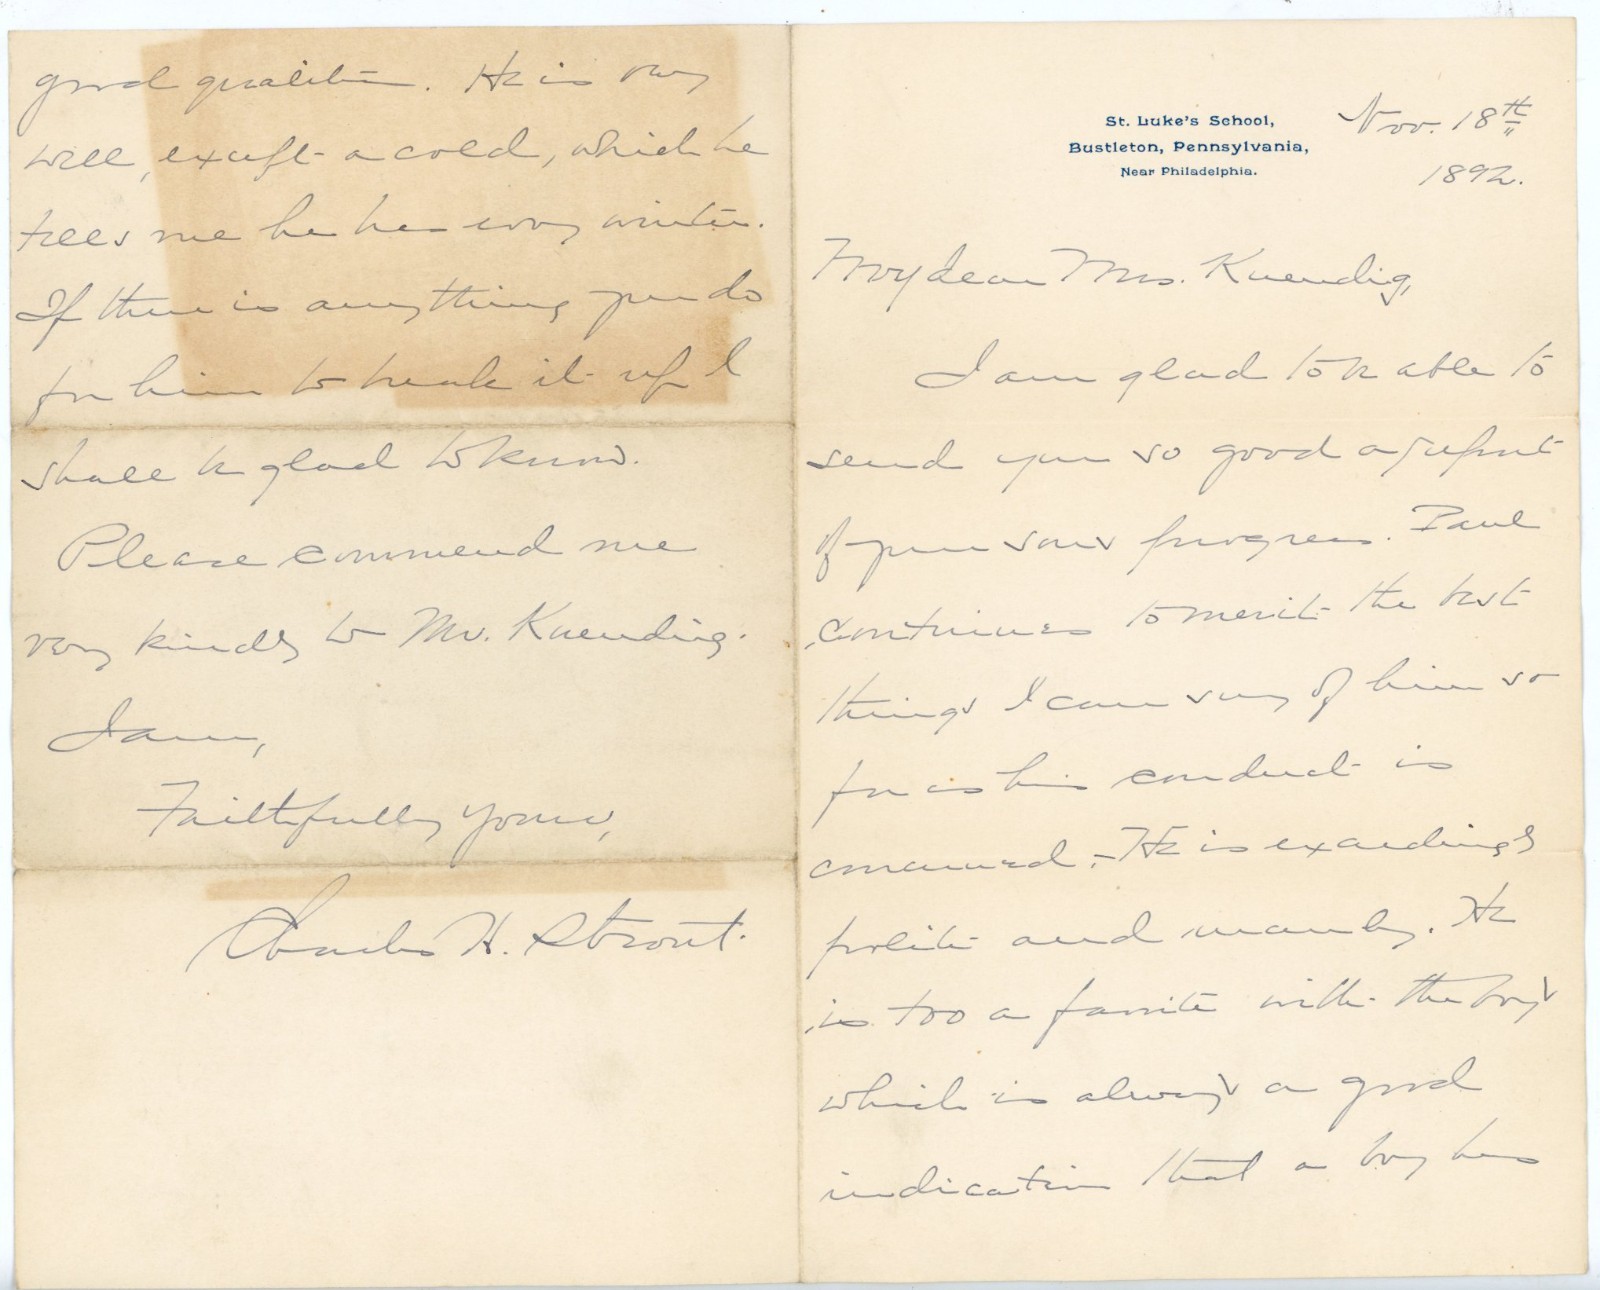 St. Luke's School,
Bustleton, Pennsylvania,
Near Philadelphia.
Nov. 18th
1892.
My dear Mrs. Kuendig,
I am glad to be able to
send you so good a report
of your son's progress. Paul
continues to merit the best
things I can say of him so
far as his conduct is
concerned. He is exceedingly
polite and manly. He
is too a favorite with the boys
which is always a good
indication that a boy has
good qualities. He is very
well, except a cold, which he
tells me he has every winter.
If there is anything you do
for him to break it up I
shall be glad to know.
Please commend me
very kindly to Mr. Kuendig.
I am,
Faithfully yours,
Charles H. Strout.